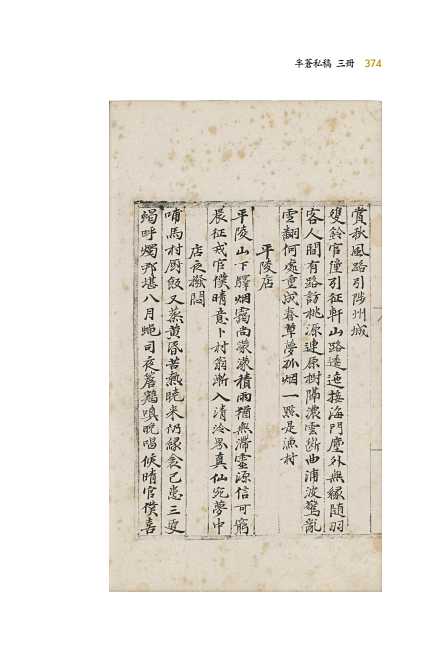 半蒼私稿 三冊 374
賞秋風路引陟州城
雙鈴官僮引征軒山路逶迤接海門塵外無緣隨羽
客人間有路訪桃源連原樹隔濃雲斷曲浦波驚亂
雪翻何處重成春草夢孤烟一點是漁村
平陵店
平陵山下驛烟靄尚濛濛積雨猶無滯靈源信可窮
晨征戒官僕晴意卜村翁漸入清泠界真仙宛夢中
店夜撥悶
哺馬村廚飯又蒸黄昏苦熱曉來仍緣衾已患三更
蝎呼燭那堪八月蠅司夜舊鷄嗔晚唱候晴官僕喜